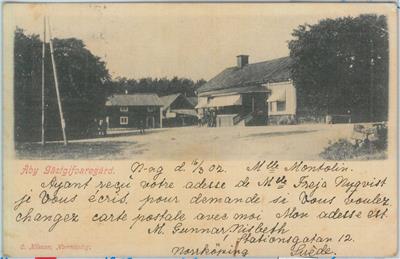 Åby Gästgifvaregård.
N-ag d. 16/3 02. Mlle Montolin.
Ayant reçu votre adesse de Mlle Freja Nyqvist
je Vous écris, pour demande si Vous voulez
changez carte postale avec moi Mon adesse est.
M. Gunnar Nisbeth
Stationsgatan 12.
Norrköping Suède.
C. Nilsson, Norrköping.